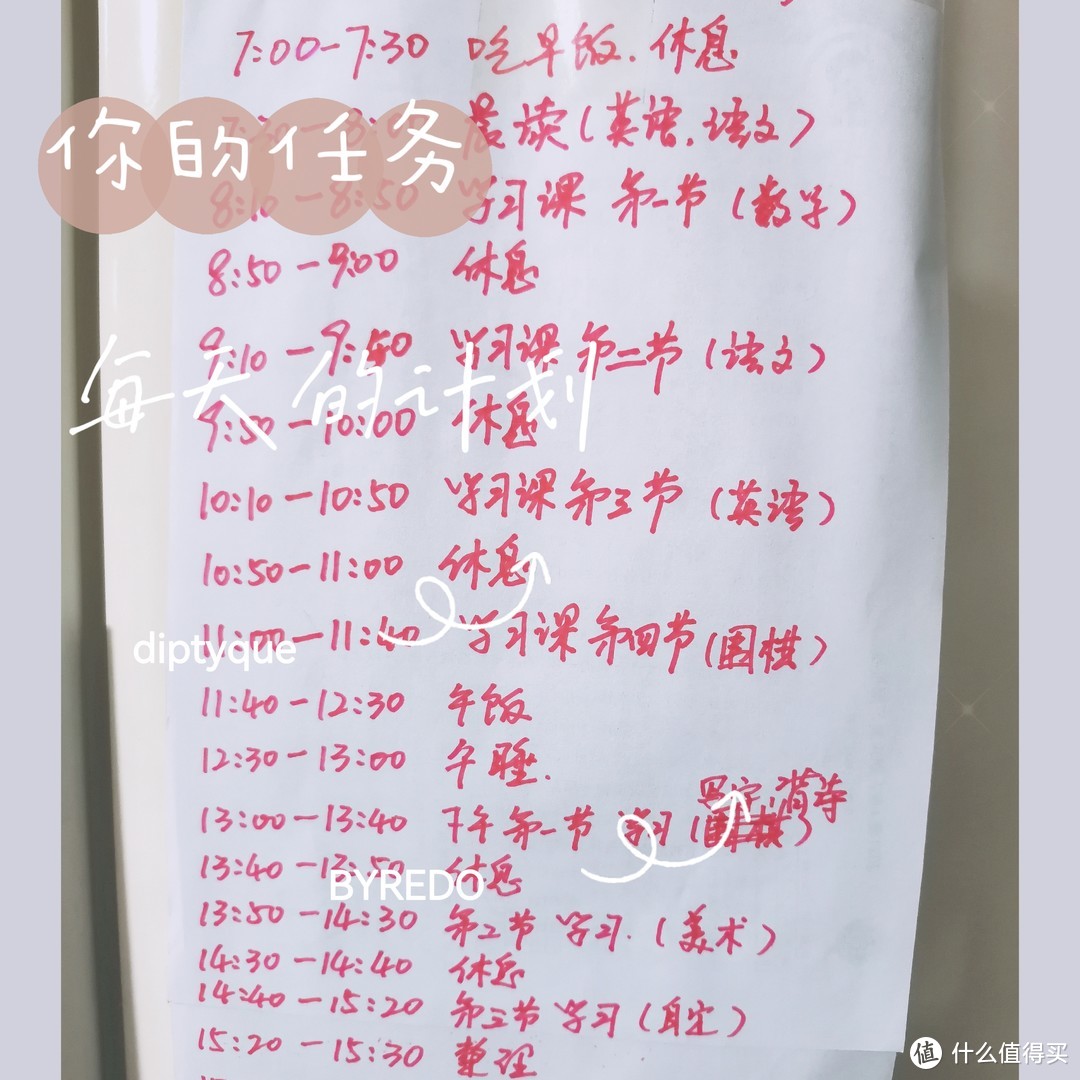 7:00-7:30 吃早饭.休息
你的任务
晨读(英语.语文)
8:10-8:50 学习课 第一节(数学)
8:50-9:00 休息
9:10-9:50 学习课 第二节(语文)
每天的计划
9:50-10:00 休息
10:10-10:50 学习课 第三节(英语)
10:50-11:00 休息
11:00-11:40 学习课 第四节(围棋)
diptyque
11:40-12:30 午饭
12:30-13:00 午睡.
13:00-13:40 下午第一节 学习()
13:40-13:50 休息
BYREDO
13:50-14:30 第二节 学习.(美术)
14:30-14:40 休息
14:40-15:20 第三节 学习(自定)
15:20-15:30 整理
值 什么值得买